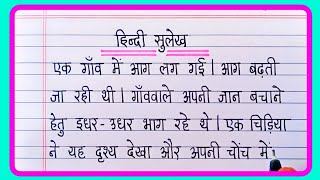 हिन्दी सुलेख
एक गाँव में आग लग गई। आग बढ़ती
जा रही थी। गाँववाले अपनी जान बचाने
हेतु इधर-उधर भाग रहे थे। एक चिड़िया
ने यह दृश्य देखा और अपनी चोंच में